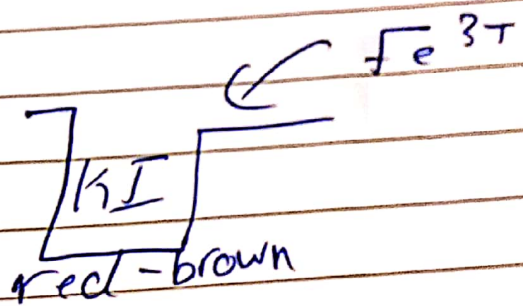 Fe 3+
KI
red-brown